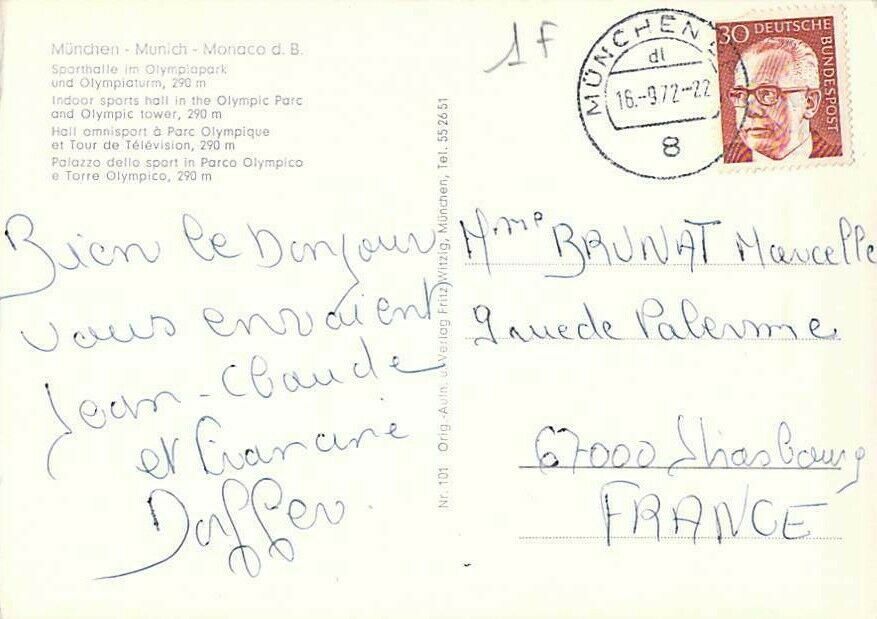 München - Munich - Monaco d. B.
Sporthalle im Olympiapark
und Olympiaturm, 290 m
Indoor sports hall in the Olympic Parc
and Olympic tower, 290 m
Hall omnisport à Parc Olympique
et Tour de Télévision, 290 m
Palazzo dello sport in Parco Olympico
e Torre Olympico, 290 m
1F
MÜNCHEN
dl
16.-9.72-22
8
30 DEUTSCHE
BUNDESPOST
Bien le Bonjour
vous envoient
Jean-Claude
et
Nr. 101 Orig.-Aufn. u. Verlag Fritz Witzig, München, Tel. 55 26 51
Mme BRUNAT Marcelle
9 rue de Palerme
67000 Strasbourg
FRANCE